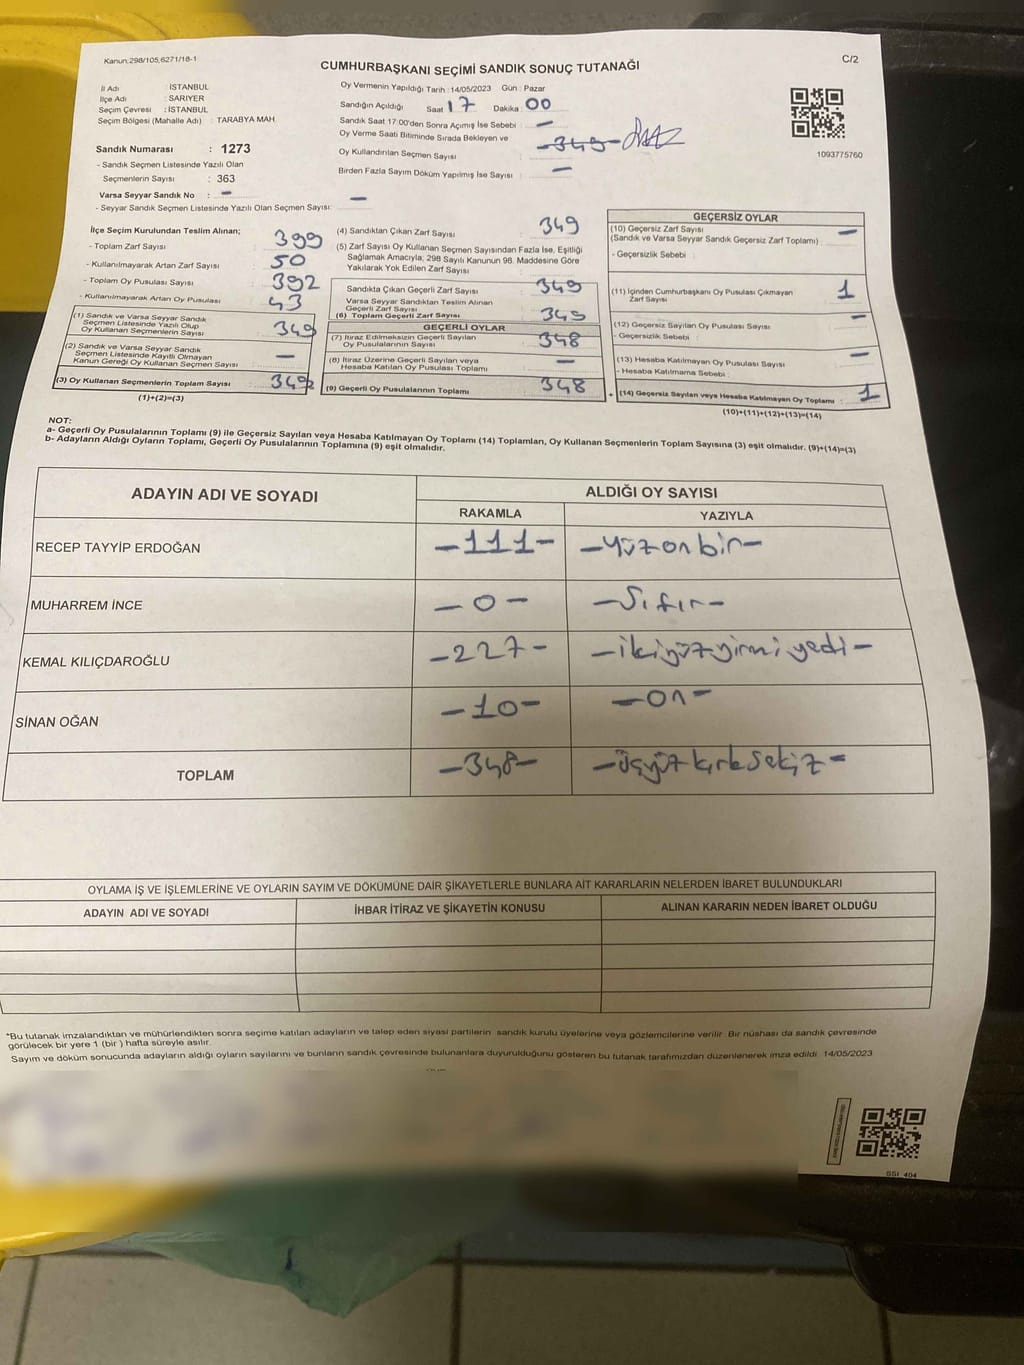 Kanun;298/105,6271/18-1
C/2
CUMHURBAŞKANI SEÇİMİ SANDIK SONUÇ TUTANAĞI
İl Adı : İSTANBUL
İlçe Adı : SARIYER
Seçim Çevresi : İSTANBUL
Seçim Bölgesi (Mahalle Adı) : TARABYA MAH.
Sandık Numarası : 1273
- Sandık Seçmen Listesinde Yazılı Olan
Seçmenlerin Sayısı : 363
Varsa Seyyar Sandık No : -
- Seyyar Sandık Seçmen Listesinde Yazılı Olan Seçmen Sayısı: -
Oy Vermenin Yapıldığı Tarih :14/05/2023 Gün : Pazar
Sandığın Açıldığı Saat 17 Dakika : 00
Sandık Saat 17:00'den Sonra Açımış İse Sebebi : -
Oy Verme Saati Bitiminde Sırada Bekleyen ve
Oy Kullandırılan Seçmen Sayısı : -349-
Birden Fazla Sayım Döküm Yapılmış İse Sayısı : -
1093775760
İlçe Seçim Kurulundan Teslim Alınan;
- Toplam Zarf Sayısı : 399
- Kullanılmayarak Artan Zarf Sayısı : 50
- Toplam Oy Pusulası Sayısı : 392
- Kullanılmayarak Artan Oy Pusulası : 43
(1) Sandık ve Varsa Seyyar Sandık
Seçmen Listesinde Yazılı Olup
Oy Kullanan Seçmenlerin Sayısı : 349
(2) Sandık ve Varsa Seyyar Sandık
Seçmen Listesinde Kayıtlı Olmayan
Kanun Gereği Oy Kullanan Seçmen Sayısı : -
(3) Oy Kullanan Seçmenlerin Toplam Sayısı : 349
(1)+(2)=(3)
(4) Sandıktan Çıkan Zarf Sayısı : 349
(5) Zarf Sayısı Oy Kullanan Seçmen Sayısından Fazla İse, Eşitliği
Sağlamak Amacıyla; 298 Sayılı Kanunun 98. Maddesine Göre
Yakılarak Yok Edilen Zarf Sayısı :
Sandıkta Çıkan Geçerli Zarf Sayısı : 349
Varsa Seyyar Sandıktan Teslim Alınan
Geçerli Zarf Sayısı :
(6) Toplam Geçerli Zarf Sayısı : 349
GEÇERLİ OYLAR
(7) İtiraz Edilmeksizin Geçerli Sayılan
Oy Pusulalarının Sayısı : 348
(8) İtiraz Üzerine Geçerli Sayılan veya
Hesaba Katılan Oy Pusulası Toplamı : -
(9) Geçerli Oy Pusulalarının Toplamı : 348
GEÇERSİZ OYLAR
(10) Geçersiz Zarf Sayısı : -
(Sandık ve Varsa Seyyar Sandık Geçersiz Zarf Toplamı)
- Geçersizlik Sebebi :
(11) İçinden Cumhurbaşkanı Oy Pusulası Çıkmayan
Zarf Sayısı : 1
(12) Geçersiz Sayılan Oy Pusulası Sayısı : -
- Geçersizlik Sebebi :
(13) Hesaba Katılmayan Oy Pusulası Sayısı : -
- Hesaba Katılmama Sebebi :
+ (14) Geçersiz Sayılan veya Hesaba Katılmayan Oy Toplamı : 1
(10)+(11)+(12)+(13)=(14)
NOT:
a- Geçerli Oy Pusulalarının Toplamı (9) ile Geçersiz Sayılan veya Hesaba Katılmayan Oy Toplamı (14) Toplamları, Oy Kullanan Seçmenlerin Toplam Sayısına (3) eşit olmalıdır. (9)+(14)=(3)
b- Adayların Aldığı Oyların Toplamı, Geçerli Oy Pusulalarının Toplamına (9) eşit olmalıdır.
ADAYIN ADI VE SOYADI ALDIĞI OY SAYISI
RAKAMLA YAZIYLA
RECEP TAYYİP ERDOĞAN -111- -Yüzonbir-
MUHARREM İNCE -0- -Sıfır-
KEMAL KILIÇDAROĞLU -227- -ikiyüzyirmiyedi-
SİNAN OĞAN -10- -on-
TOPLAM -348- -üçyüzkırksekiz-
OYLAMA İŞ VE İŞLEMLERİNE VE OYLARIN SAYIM VE DÖKÜMÜNE DAİR ŞİKAYETLERLE BUNLARA AİT KARARLARIN NELERDEN İBARET BULUNDUKLARI
ADAYIN ADI VE SOYADI İHBAR İTİRAZ VE ŞİKAYETİN KONUSU ALINAN KARARIN NEDEN İBARET OLDUĞU
*Bu tutanak imzalandıktan ve mühürlendikten sonra seçime katılan adayların ve talep eden siyasi partilerin sandık kurulu üyelerine veya gözlemcilerine verilir. Bir nüshası da sandık çevresinde
görülecek bir yere 1 (bir ) hafta süreyle asılır.
Sayım ve döküm sonucunda adayların aldığı oyların sayılarını ve bunların sandık çevresinde bulunanlara duyurulduğunu gösteren bu tutanak tarafımızdan düzenlenerek imza edildi. 14/05/2023
SSİ 404